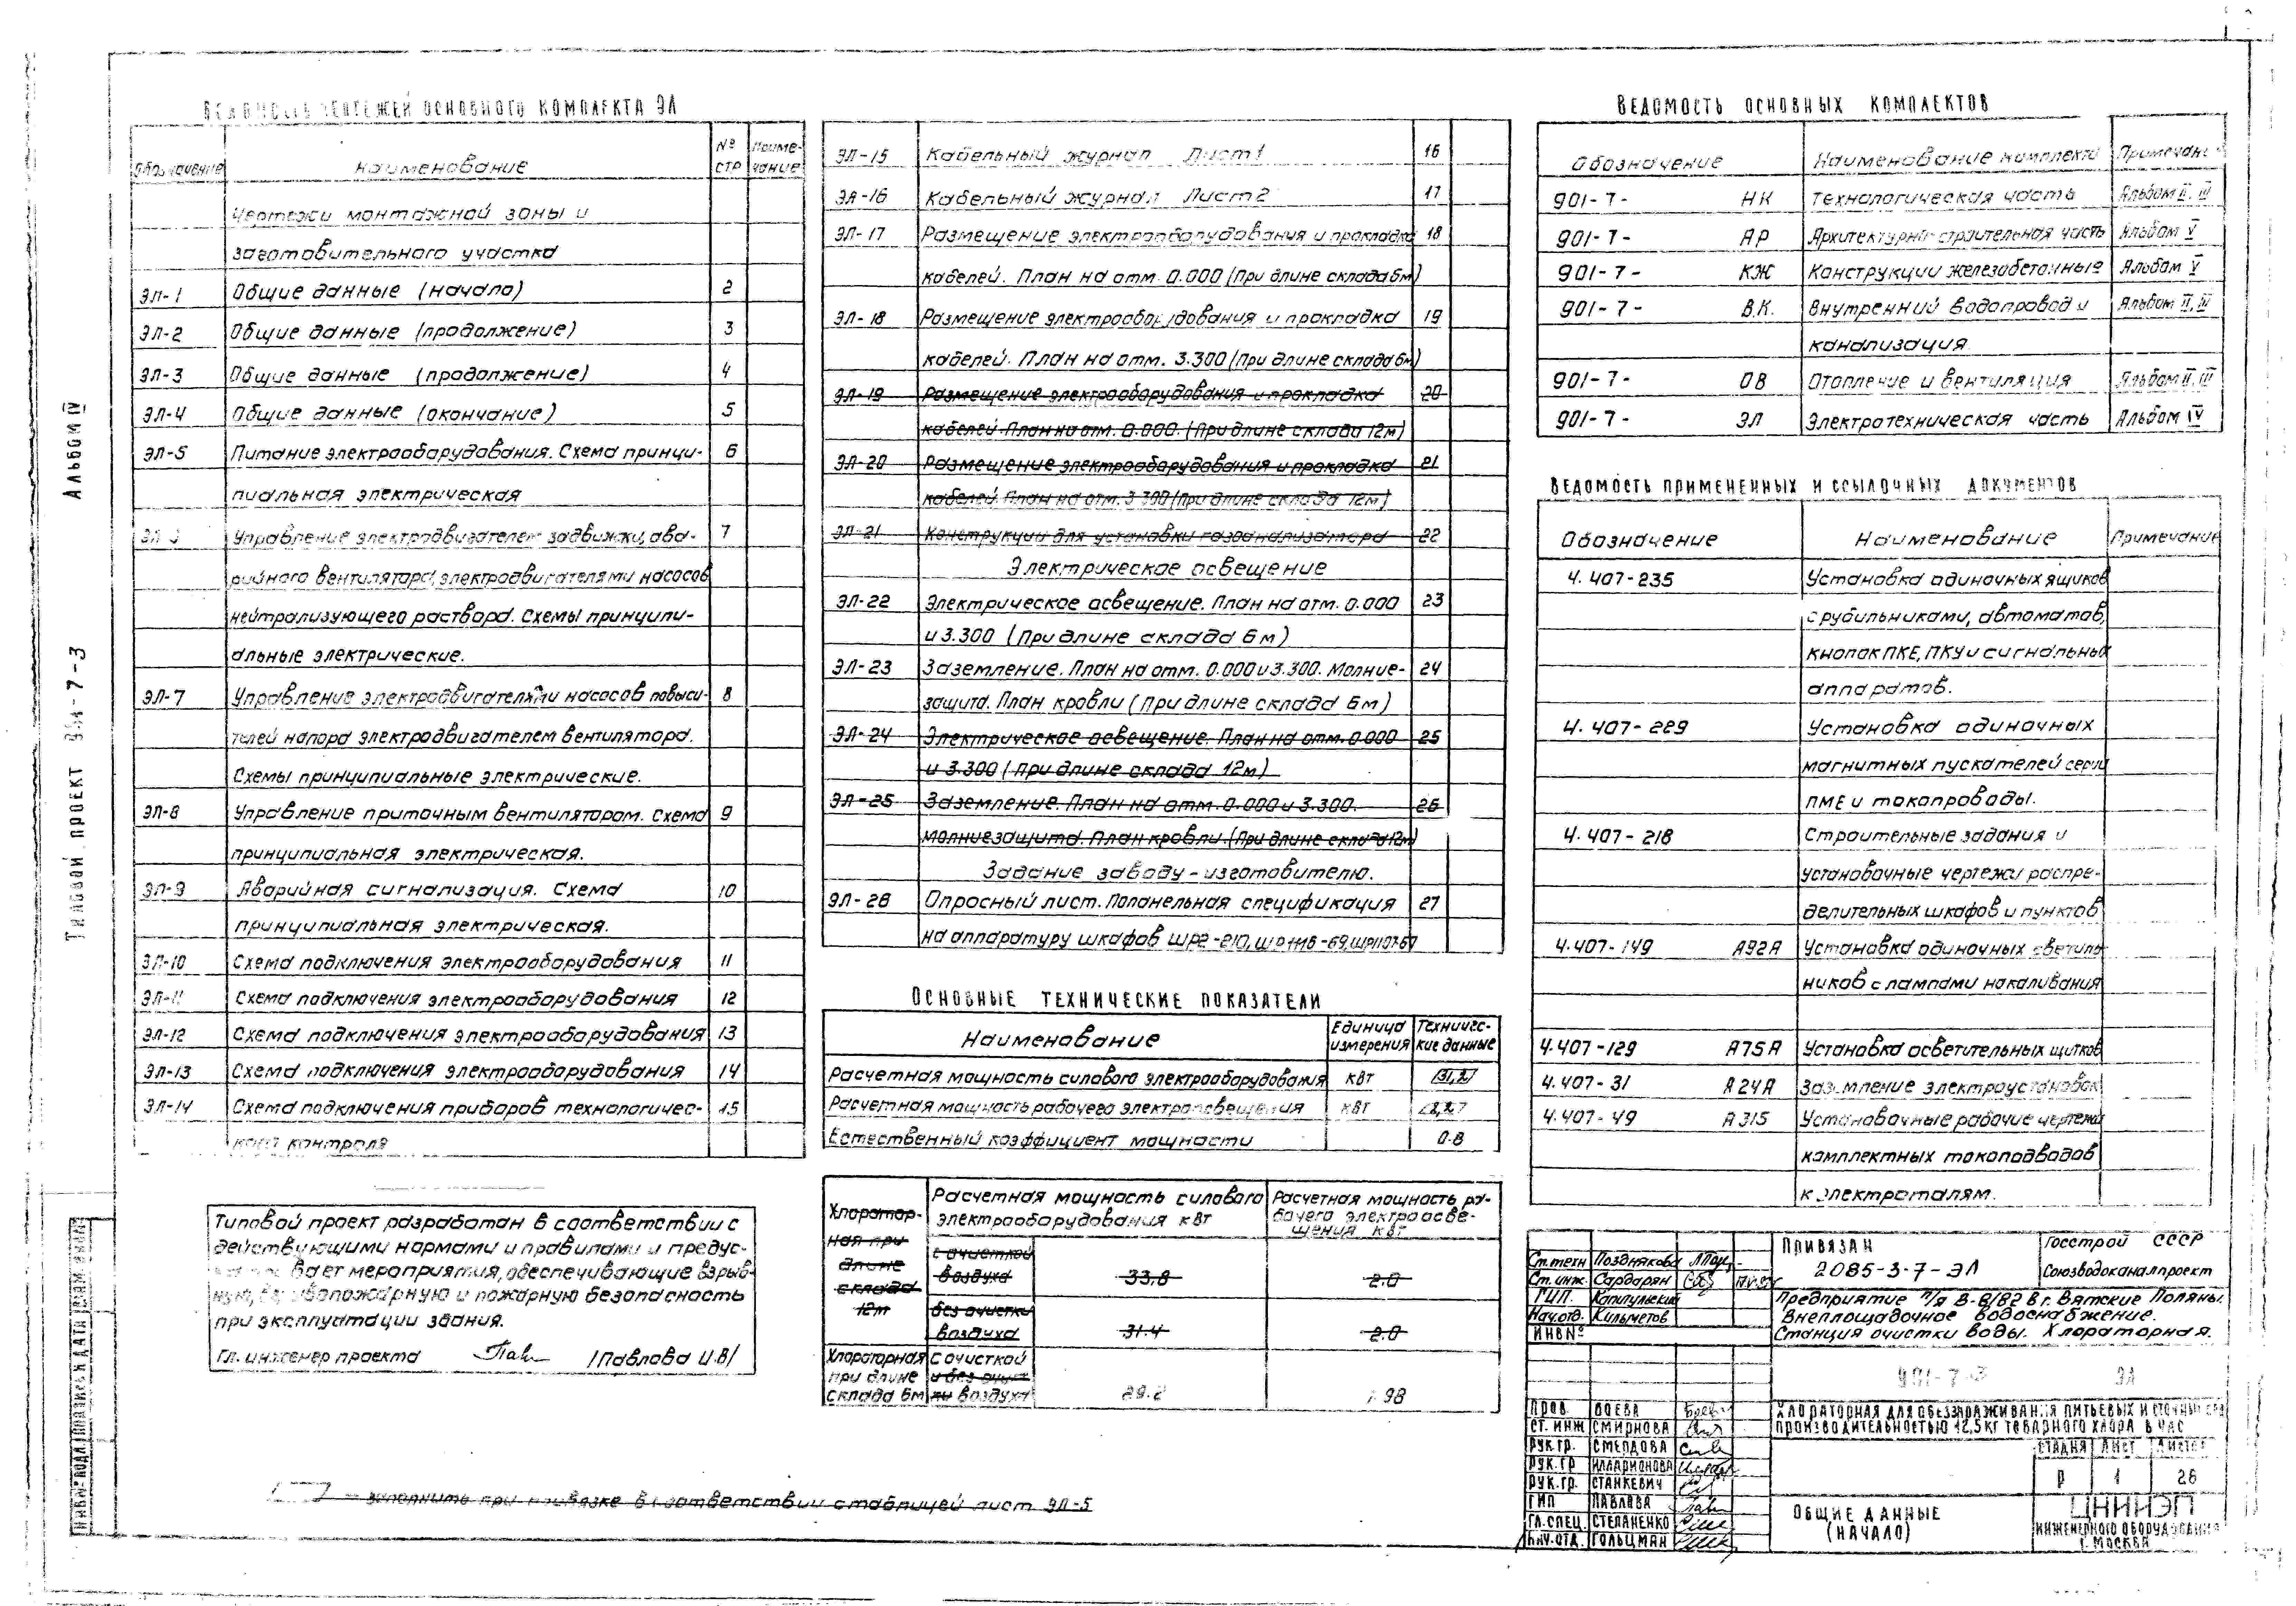 Альбом IV
Типовой проект 901-7-3
Ведомость чертежей основного комплекта ЭЛ
Обозначение Наименование № стр Приме-чание
Чертежи монтажной зоны и
заготовительного участка
ЭЛ-1 Общие данные (начало) 2
ЭЛ-2 Общие данные (продолжение) 3
ЭЛ-3 Общие данные (продолжение) 4
ЭЛ-4 Общие данные (окончание) 5
ЭЛ-5 Питание электрооборудования. Схема принци- 6
пиальная электрическая
Управление электродвигателем задвижки, ава- 7
рийного вентилятора, электродвигателями насосов
нейтрализующего раствора. Схемы принципи-
альные электрические.
ЭЛ-7 Управление электродвигателями насосов повыси- 8
телей напора электродвигателем вентилятора.
Схемы принципиальные электрические.
ЭЛ-8 Управление приточным вентилятором. Схема 9
принципиальная электрическая.
ЭЛ-9 Аварийная сигнализация. Схема 10
принципиальная электрическая.
ЭЛ-10 Схема подключения электрооборудования 11
ЭЛ-11 Схема подключения электрооборудования 12
ЭЛ-12 Схема подключения электрооборудования 13
ЭЛ-13 Схема подключения электрооборудования 14
ЭЛ-14 Схема подключения приборов технологичес- 15
кого контроля
Типовой проект разработан в соответствии с
действующими нормами и правилами и предус-
вает мероприятия, обеспечивающие взрыв-
ную, взрывопожарную и пожарную безопасность
при эксплуатации здания.
Гл. инженер проекта /Павлова И.В/
ЭЛ-15 Кабельный журнал Лист 1 16
ЭЛ-16 Кабельный журнал Лист 2 17
ЭЛ-17 Размещение электрооборудования и прокладка 18
кабелей. План на отм. 0.000 (при длине склада 6м)
ЭЛ-18 Размещение электрооборудования и прокладка 19
кабелей. План на отм. 3.300 (при длине склада 6м)
ЭЛ-19 Размещение электрооборудования и прокладка 20
кабелей. План на отм. 0.000. (При длине склада 12м)
ЭЛ-20 Размещение электрооборудования и прокладка 21
кабелей. План на отм. 3.300 (при длине склада 12м)
ЭЛ-21 Конструкции для установки газоанализатора 22
Электрическое освещение
ЭЛ-22 Электрическое освещение. План на отм. 0.000 23
и 3.300 (при длине склада 6м)
ЭЛ-23 Заземление. План на отм. 0.000 и 3.300. Молние- 24
защита. План кровли (при длине склада 6м)
ЭЛ-24 Электрическое освещение. План на отм. 0.000 25
и 3.300 (при длине склада 12м)
ЭЛ-25 Заземление. План на отм. 0.000 и 3.300. 26
молниезащита. План кровли. (при длине склада 12м)
Задание заводу-изготовителю.
ЭЛ-26 Опросный лист. Попанельная спецификация 27
на аппаратуру шкафов
Основные технические показатели
Наименование Единица измерения Техничес-кие данные
Расчетная мощность силового электрооборудования кВт
Расчетная мощность рабочего электроосвещения кВт
Естественный коэффициент мощности 0.8
Расчетная мощность силового электрооборудования кВт Расчетная мощность ра-бочего электроосве-щения кВт
Хлоратор-ная при длине склада 12м
с очисткой воздуха 33.8 2.0
без очистки воздуха 31.4 2.0
Хлораторная при длине склада 6м с очисткой воздуха 29.2 1.98
заполнить при привязке в соответствии с таблицей лист ЭЛ-5
Ведомость основных комплектов
Обозначение Наименование комплекта Примечание
901-7- НК Технологическая часть Альбом II, III
901-7- АР Архитектурно-строительная часть Альбом V
901-7- КЖ Конструкции железобетонные Альбом V
901-7- ВК. Внутренний водопровод и Альбом II, III
канализация
901-7- ОВ Отопление и вентиляция Альбом II, III
901-7- ЭЛ Электротехническая часть Альбом IV
Ведомость примененных и ссылочных документов
Обозначение Наименование Примечание
4.407-235 Установка одиночных ящиков
с рубильниками, автоматов,
кнопок ПКЕ, ПКУ и сигнальных
аппаратов.
4.407-229 Установка одиночных
магнитных пускателей серии
ПМЕ и токопроводы.
4.407-218 Строительные задания и
установочные чертежи распре-
делительных шкафов и пунктов
4.407-149 А92А Установка одиночных светиль
ников с лампами накаливания
4.407-129 А75А Установка осветительных щитков
4.407-31 А24А Заземление электроустановок
4.407-49 А315 Установочные рабочие чертежи
комплектных токоподводов
к электроталям.
Ст.техн Позднякова
Ст.инж. Сардарян
ГИП. Капитульский
Нач.отд. Кильметов
ИНВ №
Привязан
2085-3-7-ЭЛ
Госстрой СССР
Союзводоканалпроект
Предприятие п/я В-8182 в г. Вятские Поляны.
Внеплощадочное водоснабжение.
Станция очистки воды. Хлораторная.
901-7-3 ЭЛ
Хлораторная для обеззараживания питьевых и сточных вод
производительностью 12,5 кг товарного хлора в час
Пров. Боева
Ст. инж Смирнова
Рук.гр. Смердова
Рук.гр Илларионова
Рук.гр. Станкевич
ГИП Павлова
Гл.спец. Степаненко
Нач.отд. Гольцман
Стадия Лист Листов
Р 1 26
Общие данные
(начало)
ЦНИИЭП
инженерного оборудования
г. Москва